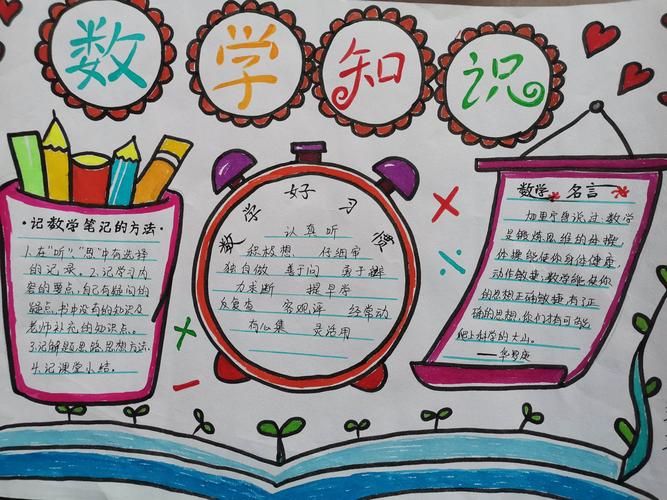 数学知识
·记数学笔记的方法·
1.在"听"、"思"中有选择
的记录。2.记学习内
容的要点,自己有疑问的
疑点,书中没有的知识及
老师补充的知识点。
3.记解题思路、思想方法.
4.记课堂小结.
数学好习惯
认真听
积极想 仔细审
独自做 善于问 勇于辩
力求断 提早学
反复查 客观评 经常动
有心集 灵活用
数学 名言
加里宁曾说过:数学
是锻炼思维的体操,
体操能使你身体健康,
动作敏捷;数学能使你
的思想正确敏捷,有了正
确的思想,你们才有可能
爬上科学的大山。
——华罗庚